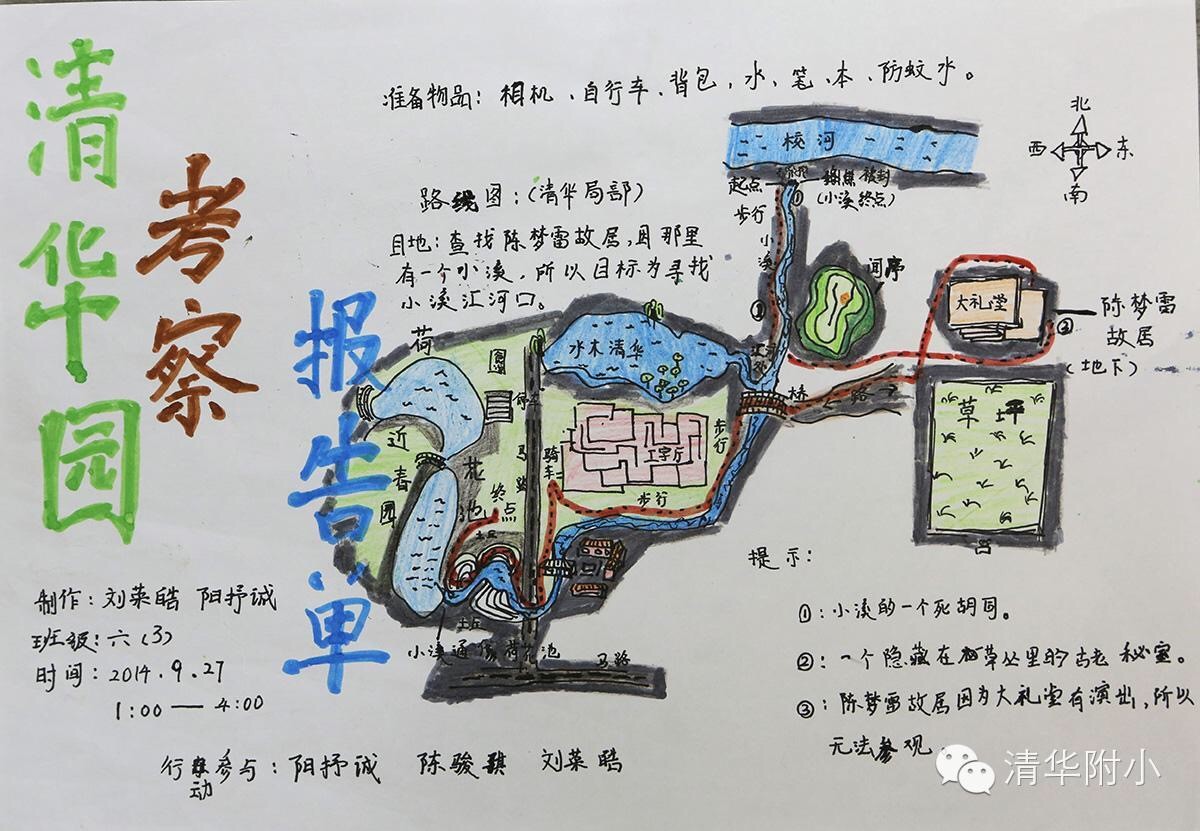 清华园
考察
报告单
准备物品：相机、自行车、背包、水、笔、本、防蚊水。
北
西
东
南
路线图：（清华局部）
目地：查找陈梦雷故居，因那里
有一个小溪，所以目标为寻找
小溪汇河口。
校河
起点
步行
(小溪终点)
①
小溪
②
闻亭
大礼堂
③
陈梦雷
故居
(地下)
荷
水木清华
桥
路
草坪
工字厅
步行
步行
骑车
马路
近春园
花池
终点
土丘
土丘
小溪通
马路
提示：
①：小溪的一个死胡同。
②：一个隐藏在草丛里的古老秘室。
③：陈梦雷故居因为大礼堂有演出，所以
无法参观。
制作：刘菜皓 阳抒诚
班级：六（3）
时间：2014.9.27
1:00 — 4:00
行动参与：阳抒诚 陈骏骐 刘菜皓
清华附小